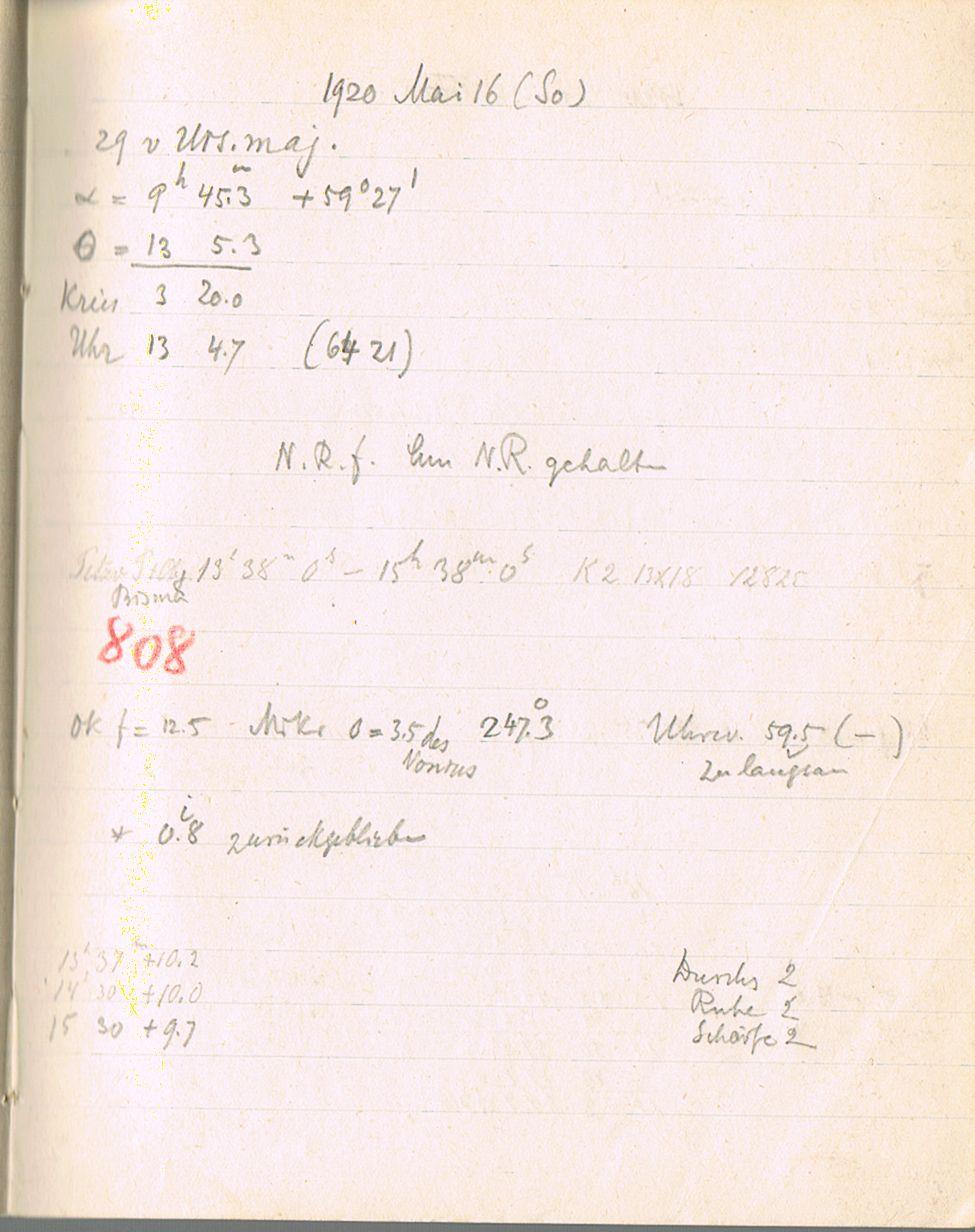 1920 Mai 16 (So)
29 υ Urs. maj.
α = 9ʰ 45.ᵐ3 +59°27'
θ = 13 5.3
Kreis 3 20.0
Uhr 13 4.7 (64 21)
N.R.f. N.R. gehalten
13ʰ 38ᵐ 0ˢ – 15ʰ 38ᵐ 0ˢ K2 13x18
808
Ok f = 12.5 Mikr 0 = 3.5 des 247.°3 59.5 (–)
Nonius zu langsam
* 0.8 zurückgeblieben
13ʰ 37ᵐ +10.2
14 30 +10.0
15 30 +9.7
Durchs 2
Ruhe 2
Schärfe 2